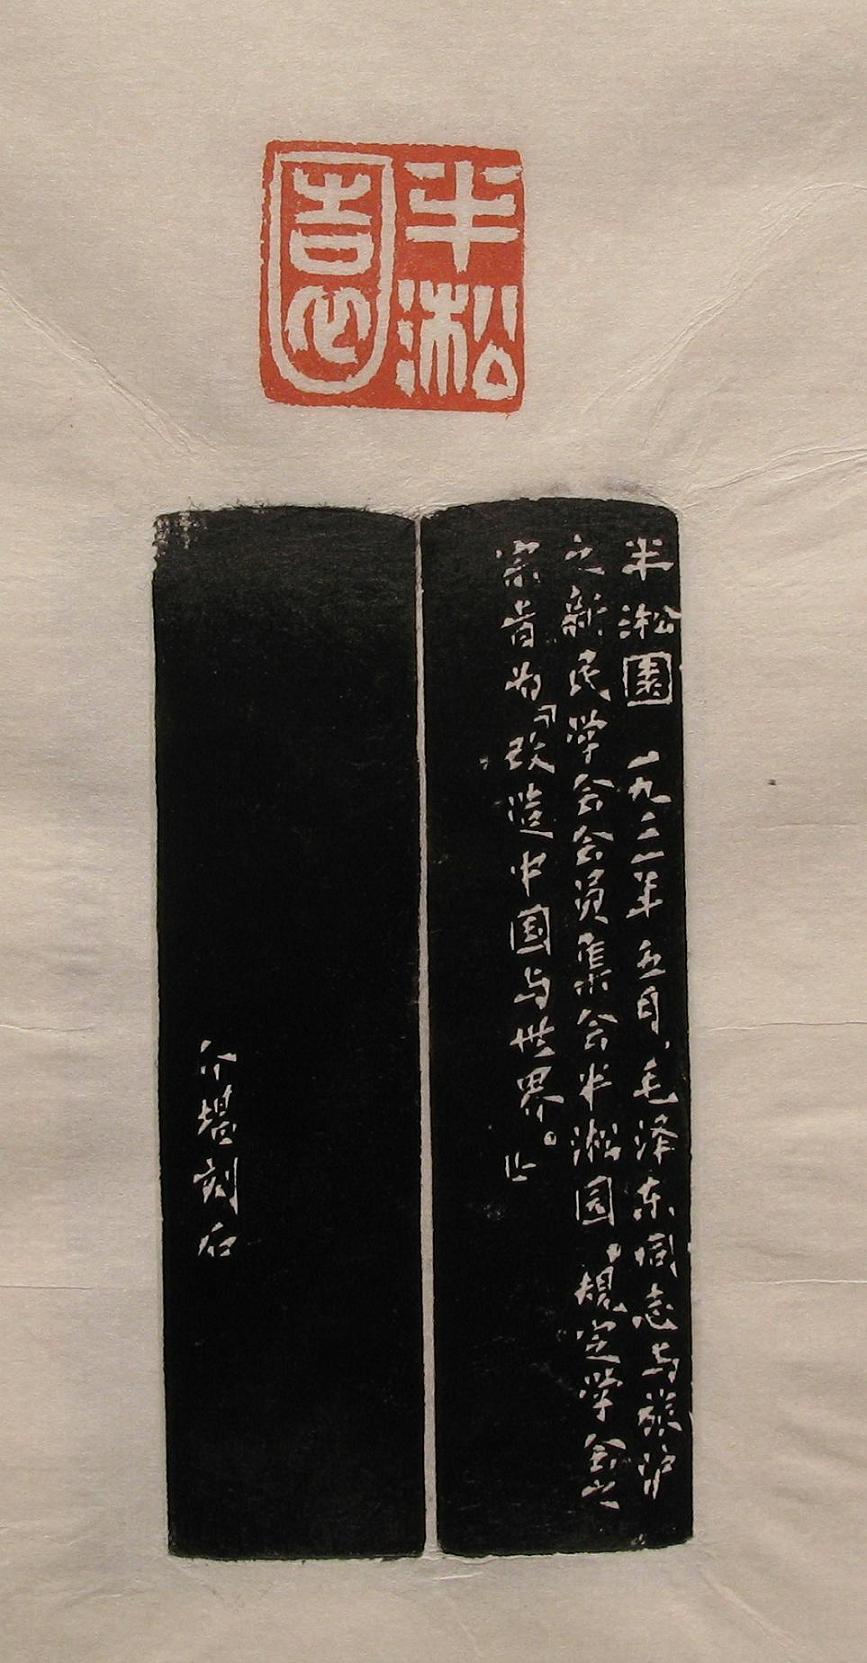 半淞園
半淞園 一九二一年五月，毛泽东同志与旅沪
之新民学会会员集会半淞园，规定学会之
宗旨为「改造中国与世界。」
介堪刻石